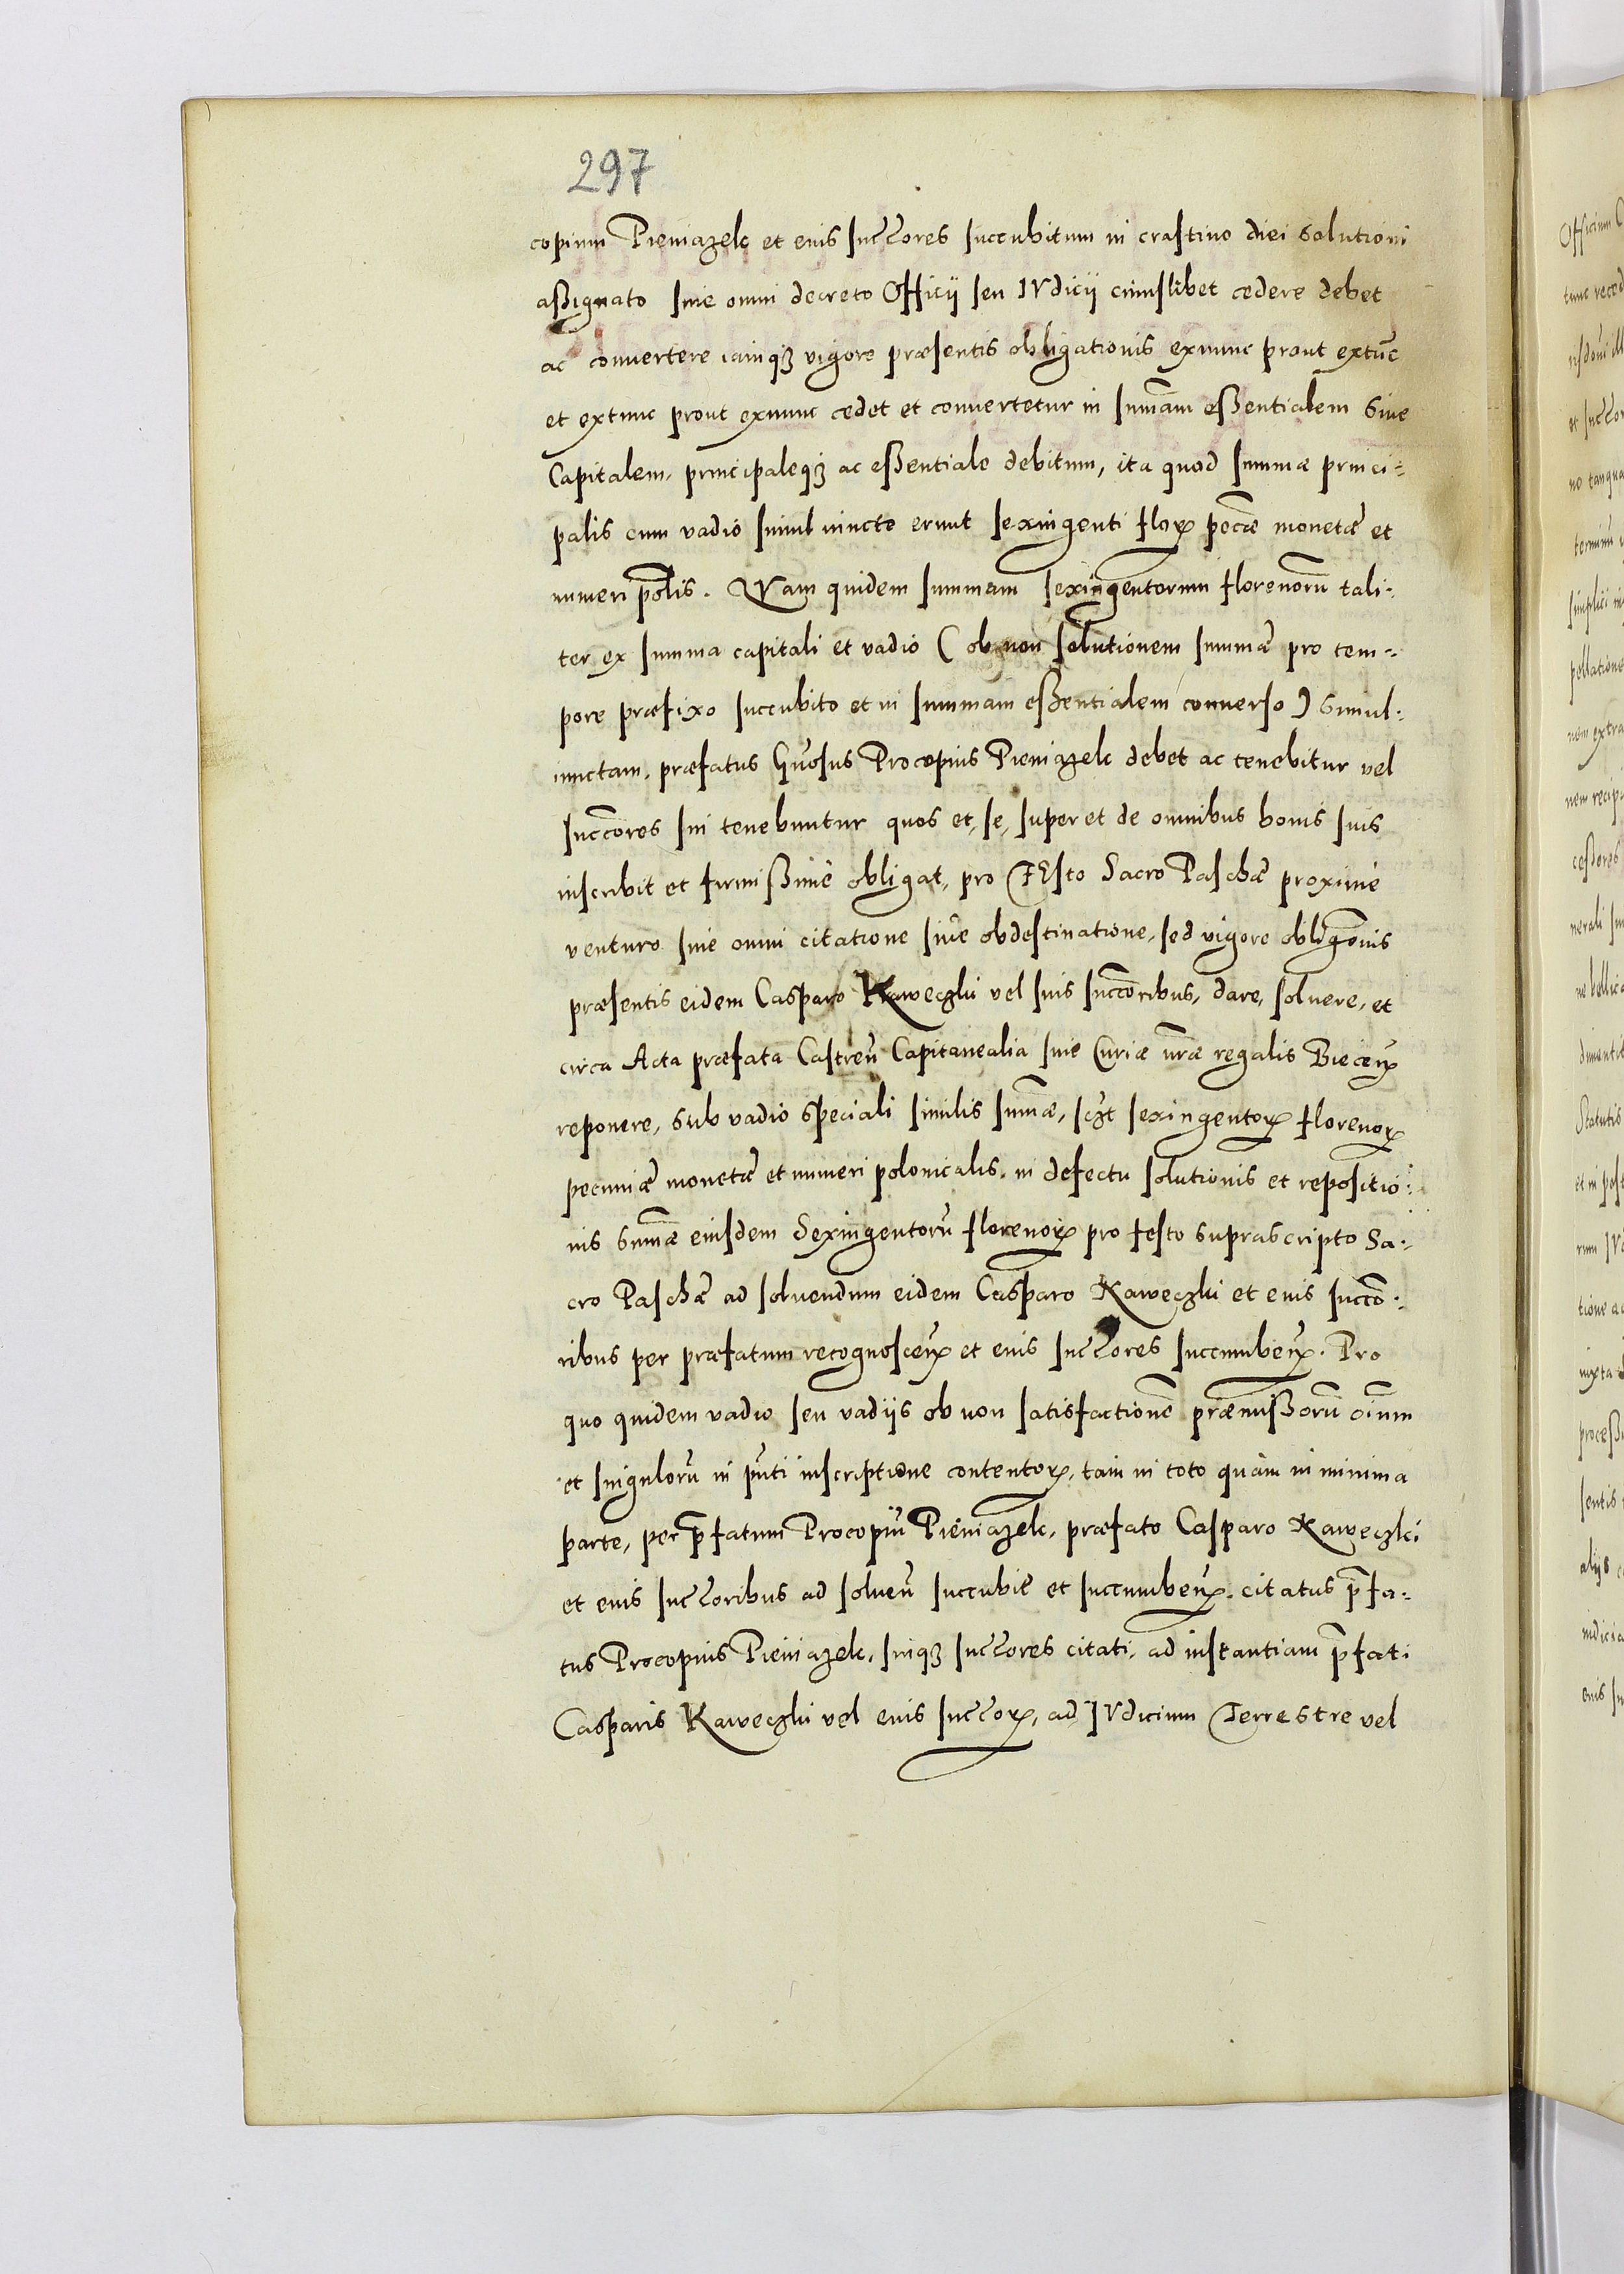 297
copium Pieniazek et eius succores succubitum in crastino diei solutioni
assignato sine omni decreto Officij seu IVdicij cuiuslibet cedere debet
ac conuertere iamqꝫ vigore præsentis obligationis exnunc prout extūc
et extunc prout exnunc cedet et conuertetur in sum̄am essentialem siue
Capitalem, principaleqꝫ ac essentiale debitum, ita quod summæ princi-
palis cum vadio simul iuncto erunt sexingenti floꝝ pecc̄æ monetæ et
numeri pol̄is. QVam quidem summam sexingentorum florenorū tali-
ter ex summa capitali et vadio (ob non solutionem summæ pro tem-
pore præfixo succubito et in summam essentialem conuerso) simul-
iunctam, præfatus Gn̄osus Procopius Pieniazek debet ac tenebitur vel
succōres sui tenebuntur quos et, se, super et de omnibus bonis suis
inscribit et firmissimè obligat, pro FEsto Sacro Paschæ proximè
venturo sine omni citatione siue obdestinatione, sed vigore obligōnis
præsentis eidem Casparo Kaweczki vel suis succōribus, dare, soluere, et
circa Acta præfata Castren̄ Capitanealia siue Curiæ nr̄æ regalis Biecen̄ꝝ
reponere, sub vadio speciali similis sum̄æ, sczt sexingentoꝝ florenoꝝ
pecuniæ monetæ et numeri polonicalis, in defectu solutionis et repositio-
nis sum̄æ eiusdem Sexingentorū florenoꝝ pro festo suprascripto Sa-
cro Paschæ ad soluendum eidem Casparo Kaweczki et eius succō-
ribus per præfatum recognoscen̄ꝝ et eius succores succumben̄ꝝ. Pro
quo quidem vadio seu vadijs ob non satisfactionē præmissorū oīnum
et singulorū in pn̄ti inscriptione contentoꝝ, tam in toto quàm in minima
parte, per p̄fatum Procopiū Pieniazek, præfato Casparo Kaweczki
et eius succoribus ad soluen̄ succubit̄ et succumben̄ꝝ, citatus p̄fa-
tus Procopius Pieniazek, suiqꝫ succores citati, ad instantiam p̄fati
Casparis Kaweczki vel eius succoꝝ, ad IVdicium Terrestre vel